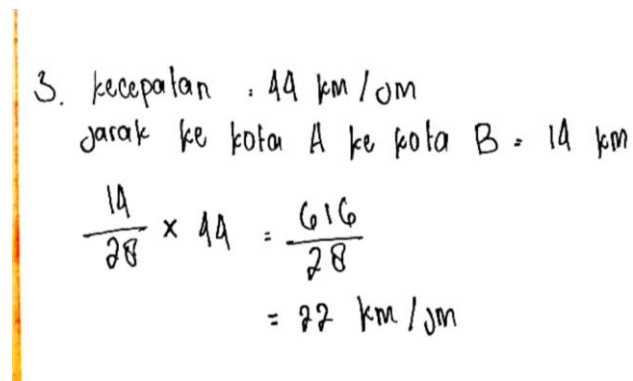 3. kecepatan : 44 km / jam
Jarak ke kota A ke kota B = 14 km
14/28 × 44 = 616/28
= 22 km / jm